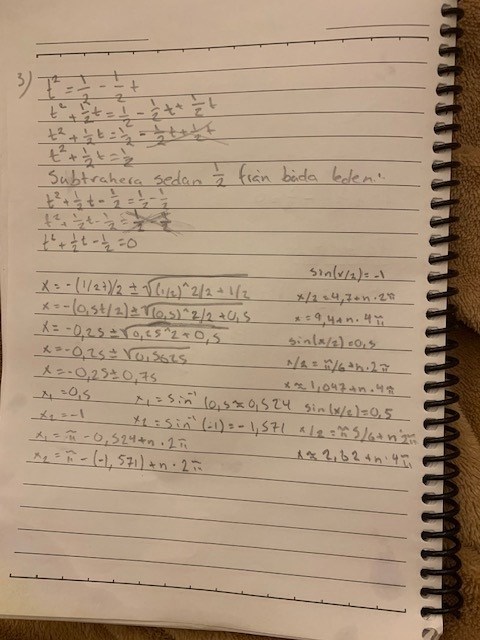 3) t² = 1/2 - 1/2 t
t² + 1/2 t = 1/2 - 1/2 t + 1/2 t
t² + 1/2 t = 1/2 - 1/2 t + 1/2 t
t² + 1/2 t = 1/2
Subtrahera sedan 1/2 från båda leden:
t² + 1/2 t - 1/2 = 1/2 - 1/2
t² + 1/2 t - 1/2 = 1/2 - 1/2
t² + 1/2 t - 1/2 = 0
x = -(1/2t)/2 ± √(1/2)^2/2 + 1/2
x = -(0,5t/2) ± √(0,5)^2/2 + 0,5
x = -0,25 ± √0,25^2 + 0,5
x = -0,25 ± √0,5625
x = -0,25 ± 0,75
x₁ = 0,5 x₁ = sin⁻¹(0,5 ≈ 0,524
x₂ = -1 x₂ = sin⁻¹(-1) = -1,571
x₁ = π - 0,524 + n · 2π
x₂ = π - (-1,571) + n · 2π
sin(x/2) = -1
x/2 = 4,7 + n · 2π
x = 9,4 + n · 4π
sin(x/2) = 0,5
x/2 = π/6 + n · 2π
x ≈ 1,047 + n · 4π
sin(x/2) = 0,5
x/2 = π5/6 + n · 2π
x ≈ 2,62 + n · 4π